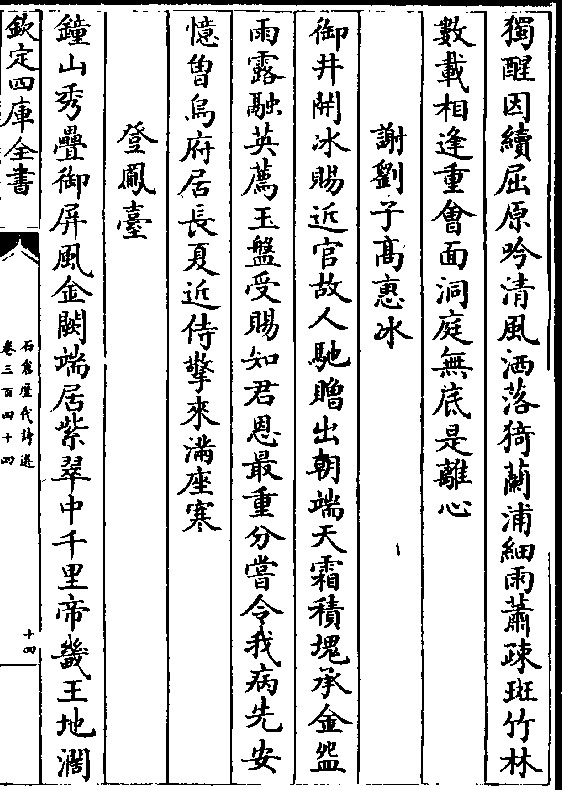 獨醒因續屈原吟清風洒落猗蘭浦細雨蕭疎斑竹林
數載相逢重會面洞庭無底是離心
謝劉子髙惠冰
御井開冰賜近官故人馳贈出朝端天霜積塊承金盌
雨露融英薦玉盤受賜知君恩最重分嘗令我病先安
憶曽烏府居長夏近侍擎來滿座寒
登鳳臺
鐘山秀疊御屏風金闕端居紫翠中千里帝畿王地濶
欽定四庫全書
石倉歷代詩選
卷三百四十四
十四